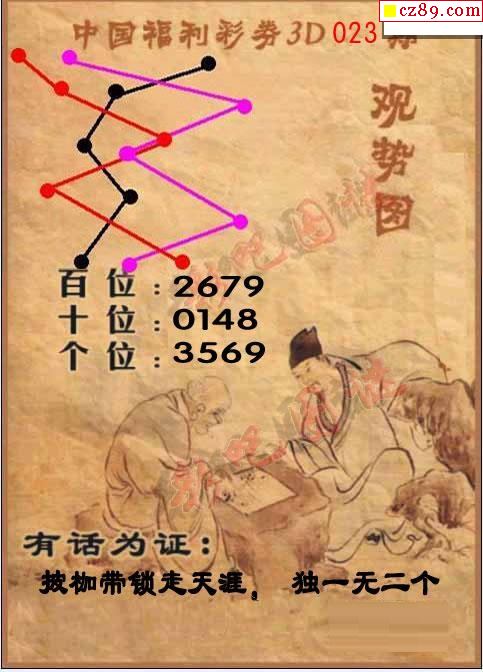 cz89.com
中国福利彩券3D 023期
观势图
百位:2679
十位:0148
个位:3569
有话为证:
披枷带锁走天涯。 独一无二个